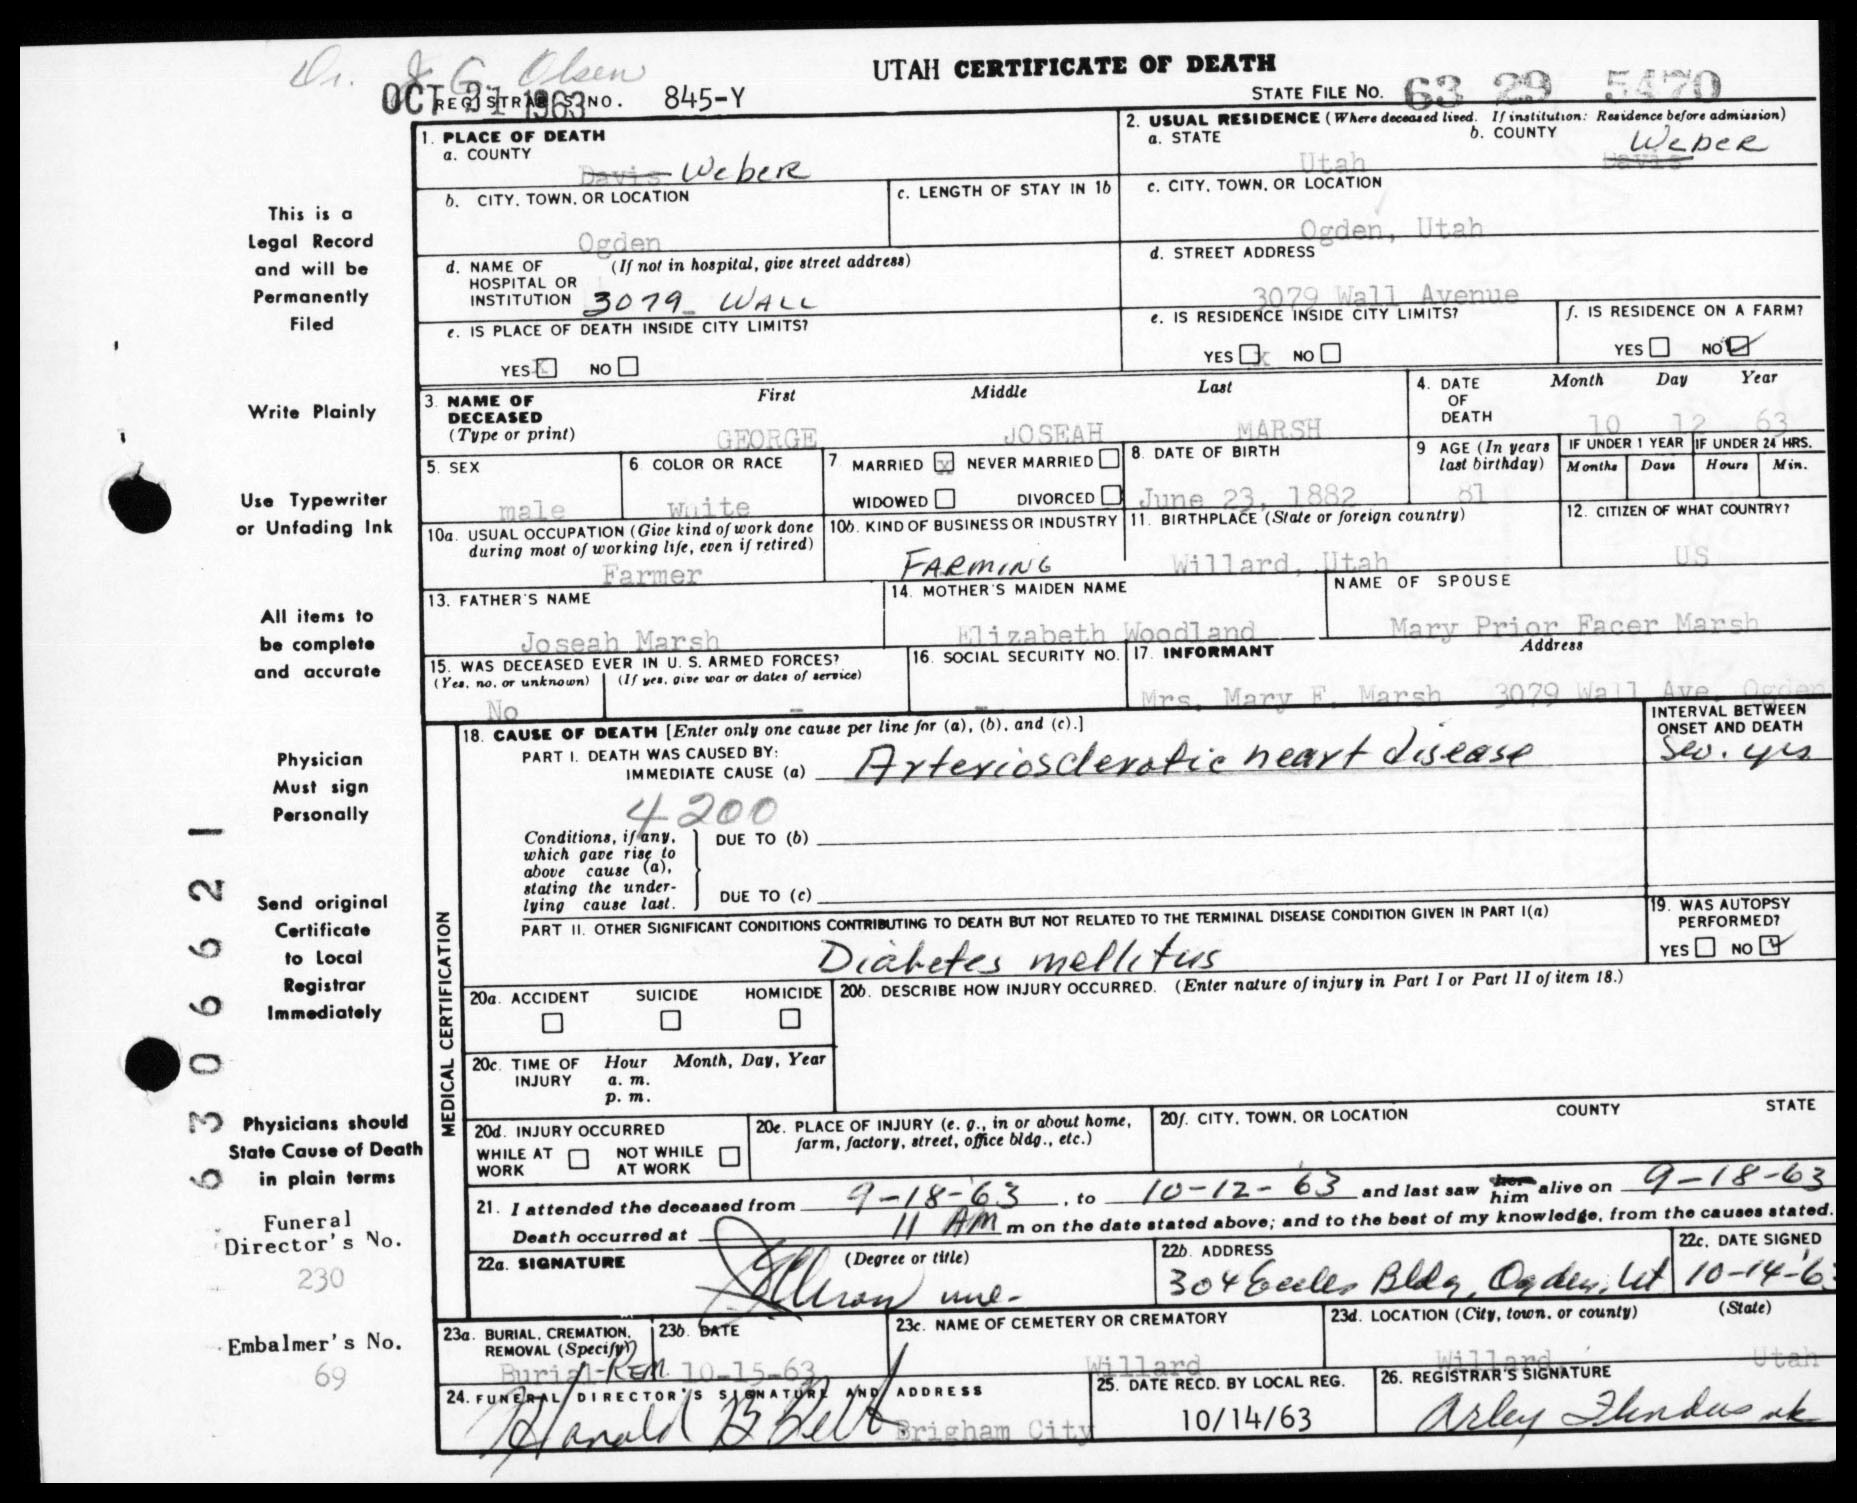 Dr. J G Olsen
UTAH CERTIFICATE OF DEATH
OCT 21 1963
REGISTRAR'S NO. 845-Y
STATE FILE NO. 63 29 5470
1. PLACE OF DEATH
a. COUNTY
Davis Weber
2. USUAL RESIDENCE (Where deceased lived. If institution: Residence before admission)
a. STATE
Utah
b. COUNTY
Davis Weber
b. CITY, TOWN, OR LOCATION
Ogden
c. LENGTH OF STAY IN 1b
c. CITY, TOWN, OR LOCATION
Ogden, Utah
d. NAME OF HOSPITAL OR INSTITUTION
(If not in hospital, give street address)
3079 WALL
d. STREET ADDRESS
3079 Wall Avenue
e. IS PLACE OF DEATH INSIDE CITY LIMITS?
YES X NO
e. IS RESIDENCE INSIDE CITY LIMITS?
YES x NO
f. IS RESIDENCE ON A FARM?
YES NO
3. NAME OF DECEASED
(Type or print)
First Middle Last
GEORGE JOSEAH MARSH
4. DATE OF DEATH
Month Day Year
10 12 63
5. SEX
male
6 COLOR OR RACE
White
7. MARRIED x NEVER MARRIED
WIDOWED DIVORCED
8. DATE OF BIRTH
June 23, 1882
9 AGE (In years last birthday)
81
IF UNDER 1 YEAR
Months Days
IF UNDER 24 HRS.
Hours Min.
10a. USUAL OCCUPATION (Give kind of work done during most of working life, even if retired)
Farmer
10b. KIND OF BUSINESS OR INDUSTRY
FARMING
11. BIRTHPLACE (State or foreign country)
Willard, Utah
12. CITIZEN OF WHAT COUNTRY?
US
13. FATHER'S NAME
Joseah Marsh
14. MOTHER'S MAIDEN NAME
Elizabeth Woodland
NAME OF SPOUSE
Mary Prior Facer Marsh
15. WAS DECEASED EVER IN U. S. ARMED FORCES?
(Yes, no, or unknown) (If yes, give war or dates of service)
No -
16. SOCIAL SECURITY NO.
-
17. INFORMANT Address
Mrs. Mary F. Marsh 3079 Wall Ave. Ogden
MEDICAL CERTIFICATION
18. CAUSE OF DEATH [Enter only one cause per line for (a), (b), and (c).]
INTERVAL BETWEEN ONSET AND DEATH
PART I. DEATH WAS CAUSED BY:
IMMEDIATE CAUSE (a) Arteriosclerotic heart disease
Sev. yrs
4200
Conditions, if any, which gave rise to above cause (a), stating the underlying cause last.
DUE TO (b)
DUE TO (c)
PART II. OTHER SIGNIFICANT CONDITIONS CONTRIBUTING TO DEATH BUT NOT RELATED TO THE TERMINAL DISEASE CONDITION GIVEN IN PART I(a)
Diabetes mellitus
19. WAS AUTOPSY PERFORMED?
YES NO
20a. ACCIDENT SUICIDE HOMICIDE
20b. DESCRIBE HOW INJURY OCCURRED. (Enter nature of injury in Part I or Part II of item 18.)
20c. TIME OF INJURY
Hour Month, Day, Year
a. m.
p. m.
20d. INJURY OCCURRED
WHILE AT WORK NOT WHILE AT WORK
20e. PLACE OF INJURY (e. g., in or about home, farm, factory, street, office bldg., etc.)
20f. CITY, TOWN, OR LOCATION COUNTY STATE
21. I attended the deceased from 9-18-63, to 10-12-63 and last saw her him alive on 9-18-63
Death occurred at 11 AM m on the date stated above; and to the best of my knowledge, from the causes stated.
22a. SIGNATURE (Degree or title)
22b. ADDRESS
304 Eccles Bldg, Ogden, Ut
22c. DATE SIGNED
10-14-63
23a. BURIAL, CREMATION, REMOVAL (Specify)
Burial-REM
23b. DATE
10-15-63
23c. NAME OF CEMETERY OR CREMATORY
Willard
23d. LOCATION (City, town, or county) (State)
Willard Utah
24. FUNERAL DIRECTOR'S SIGNATURE AND ADDRESS
Harold B Felt
Brigham City
25. DATE RECD. BY LOCAL REG.
10/14/63
26. REGISTRAR'S SIGNATURE
Arley
This is a
Legal Record
and will be
Permanently
Filed
Write Plainly
Use Typewriter
or Unfading Ink
All items to
be complete
and accurate
Physician
Must sign
Personally
Send original
Certificate
to Local
Registrar
Immediately
Physicians should
State Cause of Death
in plain terms
Funeral
Director's No.
230
Embalmer's No.
69
63066 21